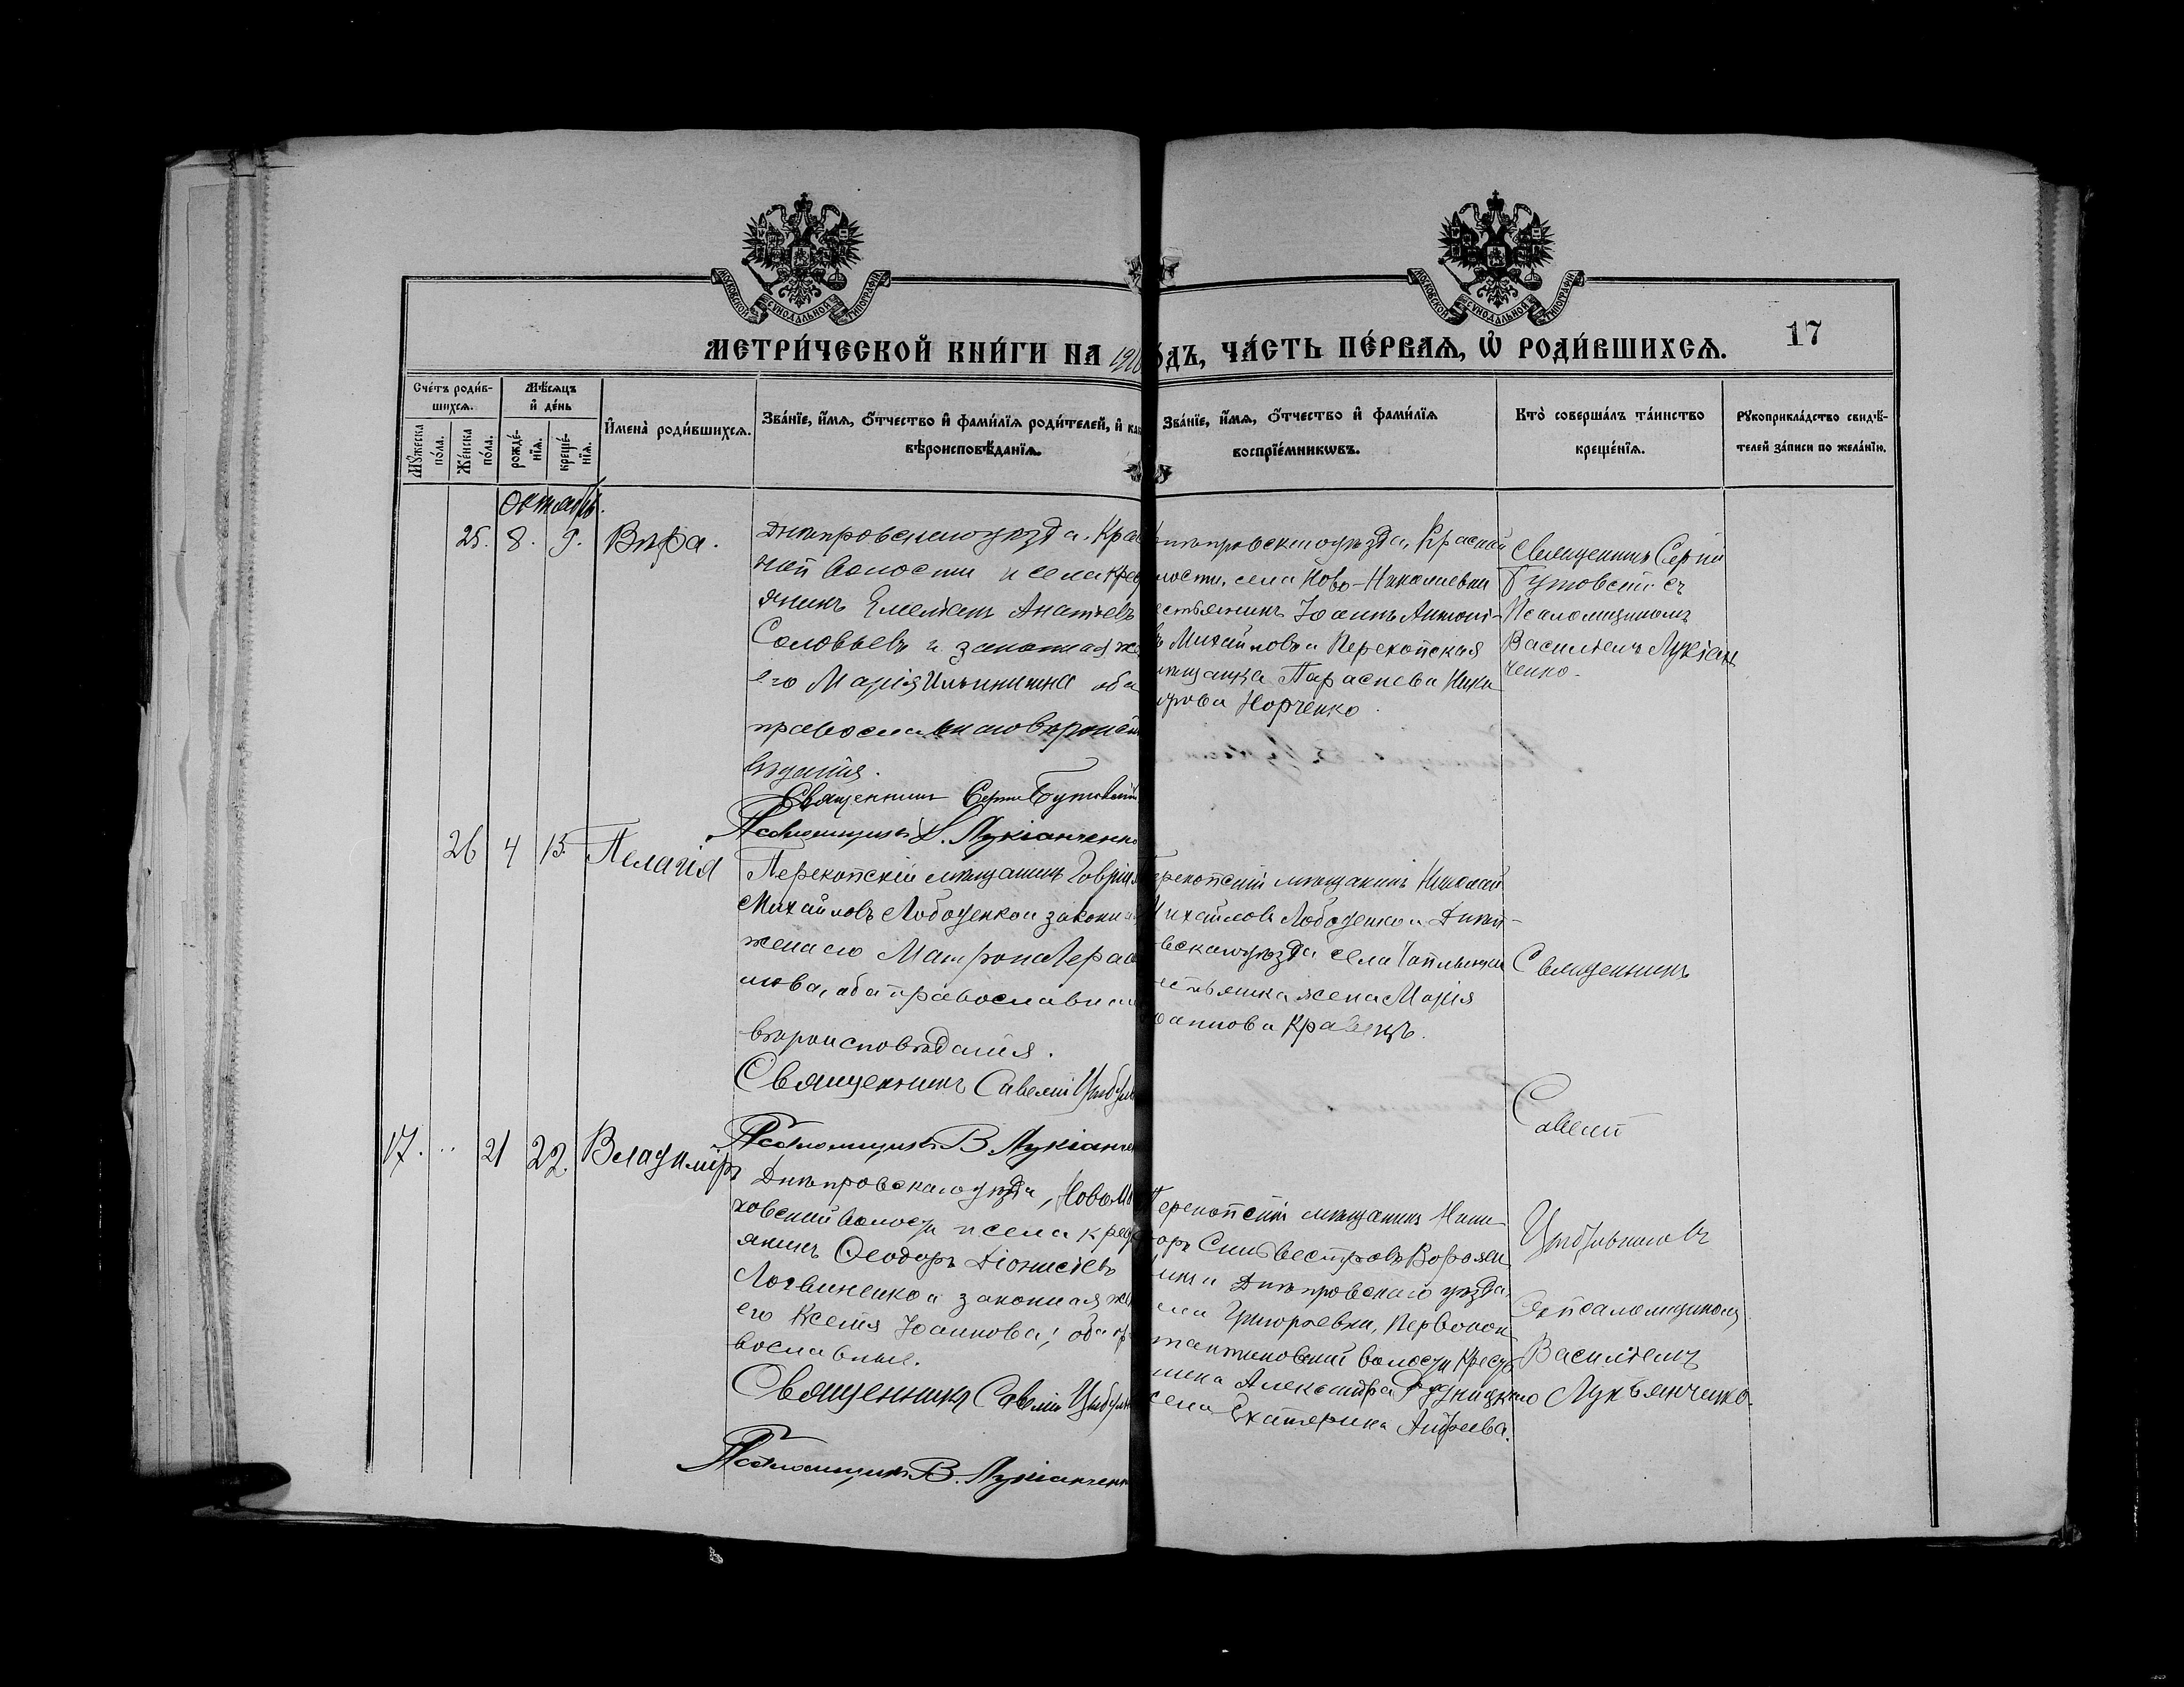 МОСКОВСКОЙ СѴНОДАЛЬНОЙ ТИПОГРАФІИ
МОСКОВСКОЙ СѴНОДАЛЬНОЙ ТИПОГРАФІИ
МЕТРИ́ЧЕСКОЙ КНИ́ГИ НА 191
О́ДЪ, ЧА́СТЬ ПЕ́РВАЯ, Ѡ҆ РОДИ́ВШИХСЯ.
17
Сче́тъ роди́в-
шихся.
Мѣ́сяцъ
и҆ де́нь
Мꙋ́жеска
по́ла.
Же́нска
по́ла.
рожде́-
нїя.
креще́-
нїя.
И҆мена̀ роди́вшихся.
Зва́нїе, и҆́мя, ѻ҆́тчество и҆ фами́лїя роди́телей, и҆ как
вѣроисповѣ́данїя.
Зва́нїе, и҆́мя, ѻ҆́тчество и҆ фами́лїя
воспрїе́мникѡвъ.
Кто̀ соверша́лъ та́инство
креще́нїя.
Рꙋкоприкла́дство свидѣ́-
телей за́писи по жела́нїю.
Октябрь.
25. 8. 9. Вѣра.
Днѣпровскаго уѣзда, Крас
ной волости и села крес
янинъ Емеліанъ
Соловьевъ и законная же
его Марія Ильинична оба
православнаго вѣроиспо
вѣданія.
Священникъ Сергій Бутовскій
Псаломщикъ В. Лукіанченко
нѣпровскаго уѣзда, Красной
лости, села Ново-Николаевки
естьянинъ Іоаннъ Антоні-
въ Михайловъ и Перекопская
мѣщанка Параскева Ники
форова Норченко.
Священникъ Сергій
Бутовскій съ
Псаломщикомъ
Василіемъ Лукіан
ченко.
26 4 15. Пелагія
Перекопскій мѣщанинъ Гавріил
Михайловъ Лободенко и законна
жена его Матрона Гераси
мова, оба православнаго
вѣроисповѣданія.
Священникъ Савелій Цыбул
Псаломщикъ В Лукіанчен
ерекопскій мѣщанинъ Николай
Михайловъ Лободенко и Днѣп-
вскаго уѣзда села
естьянка жена Марія
оаннова Кравецъ.
Священникъ
Савелій
17. .. 21 22. Владиміръ
Днѣпровскаго уѣзда, Ново-М
ховской волости и села крест
янинъ Ѳеодоръ Діонисіевъ
Логвиненко и законная же
его Ксенія Іоаннова; оба пр
вославные.
Священникъ Савелій Цыбул
Псаломщикъ В. Лукіанченк
Перекопскій мѣщанинъ Ники
форъ Сильвестровъ
и Днѣпровскаго уѣзда
села Григорьевки, Первокон
стантиновской волости крестья
нина Александра
жена Екатерина Андреева.
съ псаломщикомъ
Василіемъ
Лукьянченко.